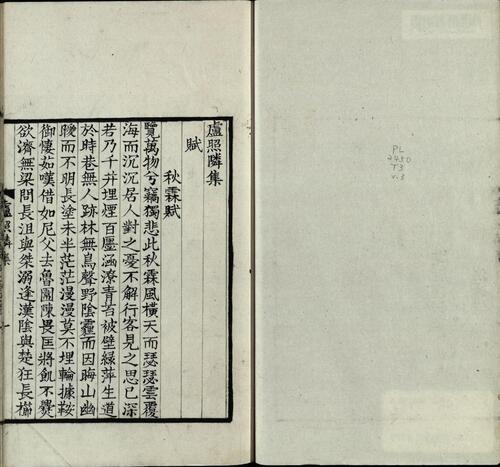 盧照隣集
賦
秋霖賦
覽萬物兮竊獨悲此秋霖風橫天而瑟瑟雲覆
海而沉沉居人對之憂不解行客見之思已深
若乃千井埋煙百廛涵潦青苔被壁綠萍生道
於時巷無人跡林無鳥聲野陰霾而因晦山幽
曖而不明長塗未半茫茫漫漫莫不埋輪據鞍
御悽茹嘆借如尼父去魯圍陳畏匡將飢不爨
欲濟無梁問長沮與桀溺逢漢陰與楚狂長櫛
盧照隣集
一
PL
2450
T3
v.3